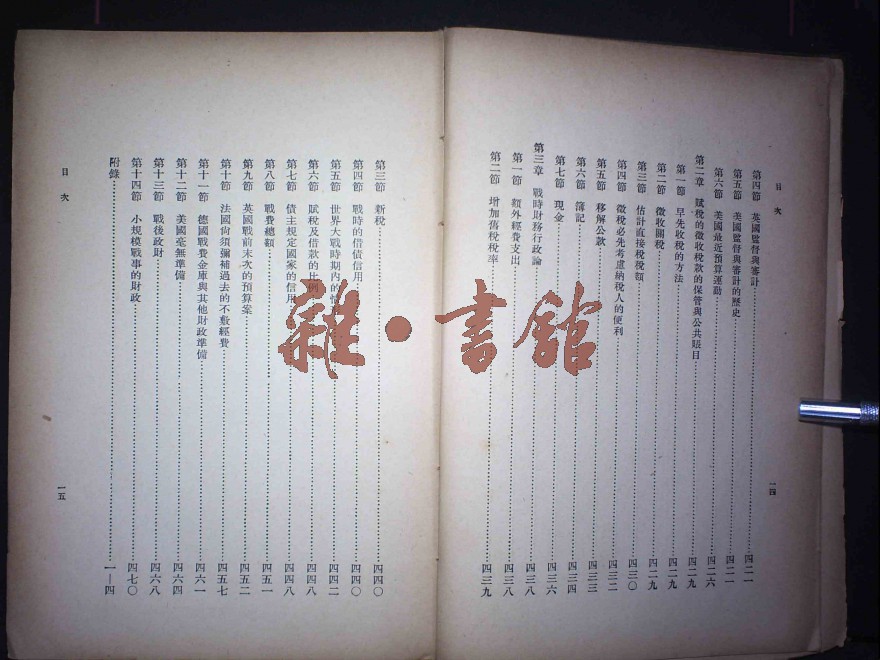 目次
第四節 英國監督與審計……四二一
第五節 美國監督與審計的歷史……四二一
第六節 美國最近預算運動……四二六
第二章 賦稅的徵收稅款的保管與公共賬目……四二九
第一節 早先收稅的方法……四二九
第二節 徵收關稅……四二九
第三節 估計直接稅稅額……四三〇
第四節 徵稅必先考慮納稅人的便利……四三二
第五節 移解公款……四三三
第六節 簿記……四三四
第七節 現金……四三六
第三章 戰時財務行政論……四三八
第一節 額外經費支出……四三八
第二節 增加舊稅稅率……四三九
一四
第三節 新稅……四四〇
第四節 戰時的借債信用……四四〇
第五節 世界大戰時期內的……四四二
第六節 賦稅及借款的比例……四四八
第七節 債主規定國家的信用……四四八
第八節 戰費總額……四五一
第九節 英國戰前末次的預算案……四五二
第十節 法國尙須彌補過去的不敷經費……四五七
第十一節 德國戰費金庫與其他財政準備……四六一
第十二節 美國毫無準備……四六四
第十三節 戰後政財……四六八
第十四節 小規模戰事的財政……四七〇
附錄……一—四
目次
一五
雜·書館